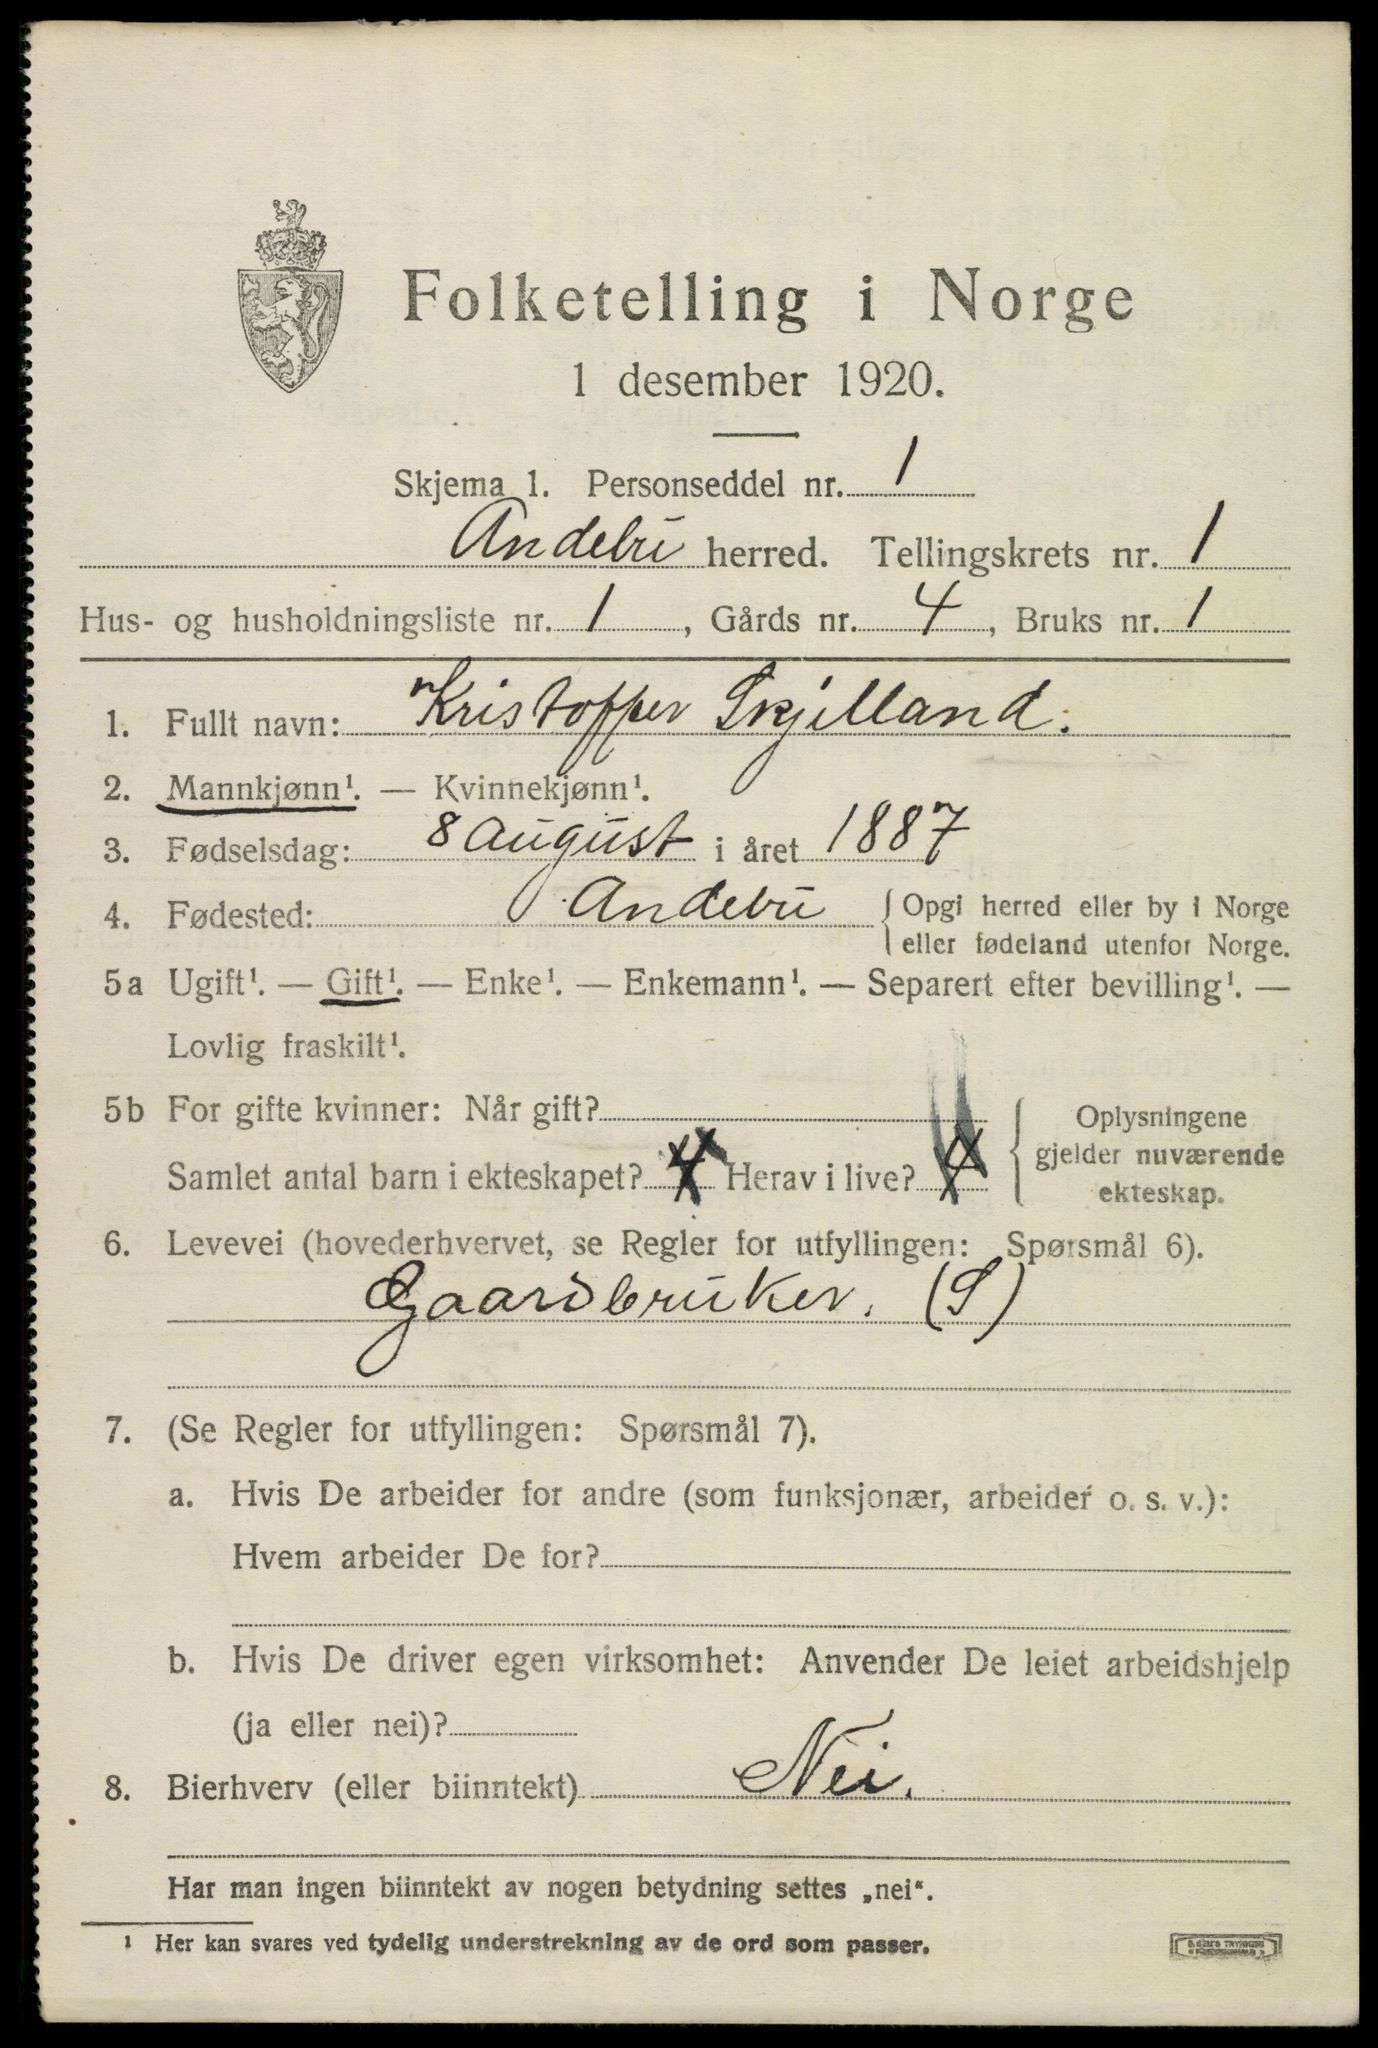 Folketelling i Norge
1 desember 1920.
Skjema 1. Personseddel nr. 1
Andebu herred. Tellingskrets nr. 1
Hus- og husholdningsliste nr. 1, Gårds nr. 4, Bruks nr. 1
1. Fullt navn: Kristoffer Skjelland.
2. Mannkjønn¹. — Kvinnekjønn¹.
3. Fødselsdag: 8 August i året 1887
4. Fødested: Andebu { Opgi herred eller by i Norge
eller fødeland utenfor Norge.
5a Ugift¹. — Gift¹. — Enke¹. — Enkemann¹. — Separert efter bevilling¹. —
Lovlig fraskilt¹.
5b For gifte kvinner: Når gift?
Samlet antal barn i ekteskapet? 4 Herav i live? 4
Oplysningene
gjelder nuværende
ekteskap.
6. Levevei (hovederhvervet, se Regler for utfyllingen: Spørsmål 6).
Gaardbruker. (S)
7. (Se Regler for utfyllingen: Spørsmål 7).
a. Hvis De arbeider for andre (som funksjonær, arbeider o. s. v.):
Hvem arbeider De for?
b. Hvis De driver egen virksomhet: Anvender De leiet arbeidshjelp
(ja eller nei)?
8. Bierhverv (eller biinntekt) Nei.
Har man ingen biinntekt av nogen betydning settes „nei“.
¹ Her kan svares ved tydelig understrekning av de ord som passer.